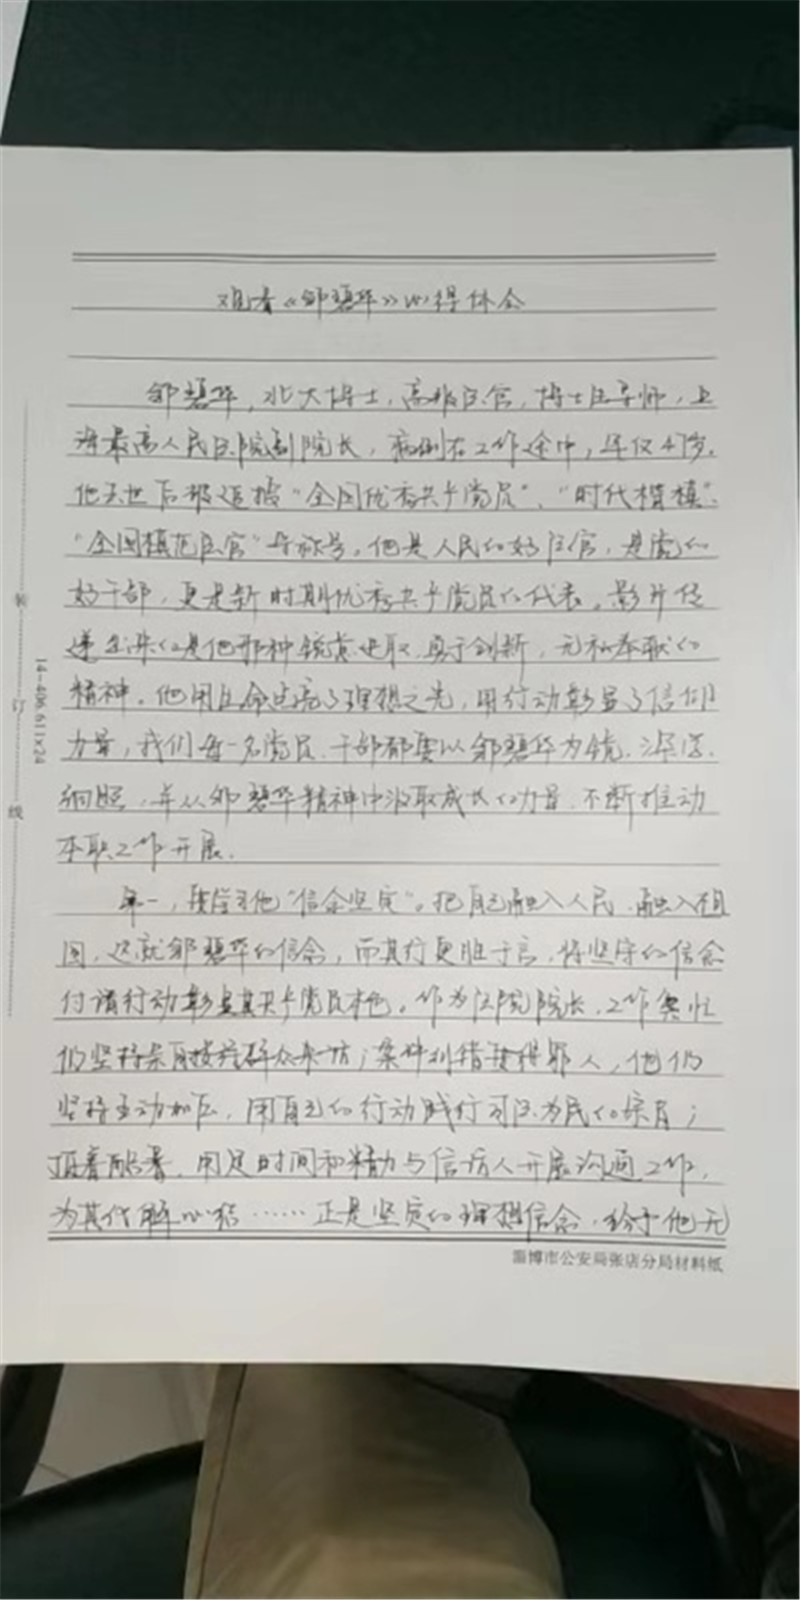 观看《邹碧华》心得体会
邹碧华，北大博士，高级法官，博士生导师，上
海最高人民法院副院长，病倒在工作途中，年仅47岁。
他去世后被追授“全国优秀共产党员”、“时代楷模”、
“全国模范法官”等称号。他是人民的好法官，是党的
好干部，更是新时期优秀共产党员的代表。影片传
递出来的是他那种锐意进取、勇于创新，无私奉献的
精神。他用生命点亮了理想之光，用行动彰显了信仰
力量，我们每一名党员、干部都要以邹碧华为镜、深学、
细照，并从邹碧华精神中汲取成长的力量，不断推动
本职工作开展。
第一，要学习他“信念坚定”。把自己融入人民、融入祖
国，这就邹碧华的信念，而其行更胜于言，将坚守的信念
付诸行动彰显其共产党员本色。作为法院院长，工作繁忙
仍坚持亲自接待群众来访；案件纠错要得罪人，他仍
坚持主动加压，用自己的行动践行司法为民的宗旨；
顶着酷暑，用足时间和精力与信访人开展沟通工作，
为其化解心结……正是坚定的理想信念，给予他无
淄博市公安局张店分局材料纸
装
订
线
14-406 611×24